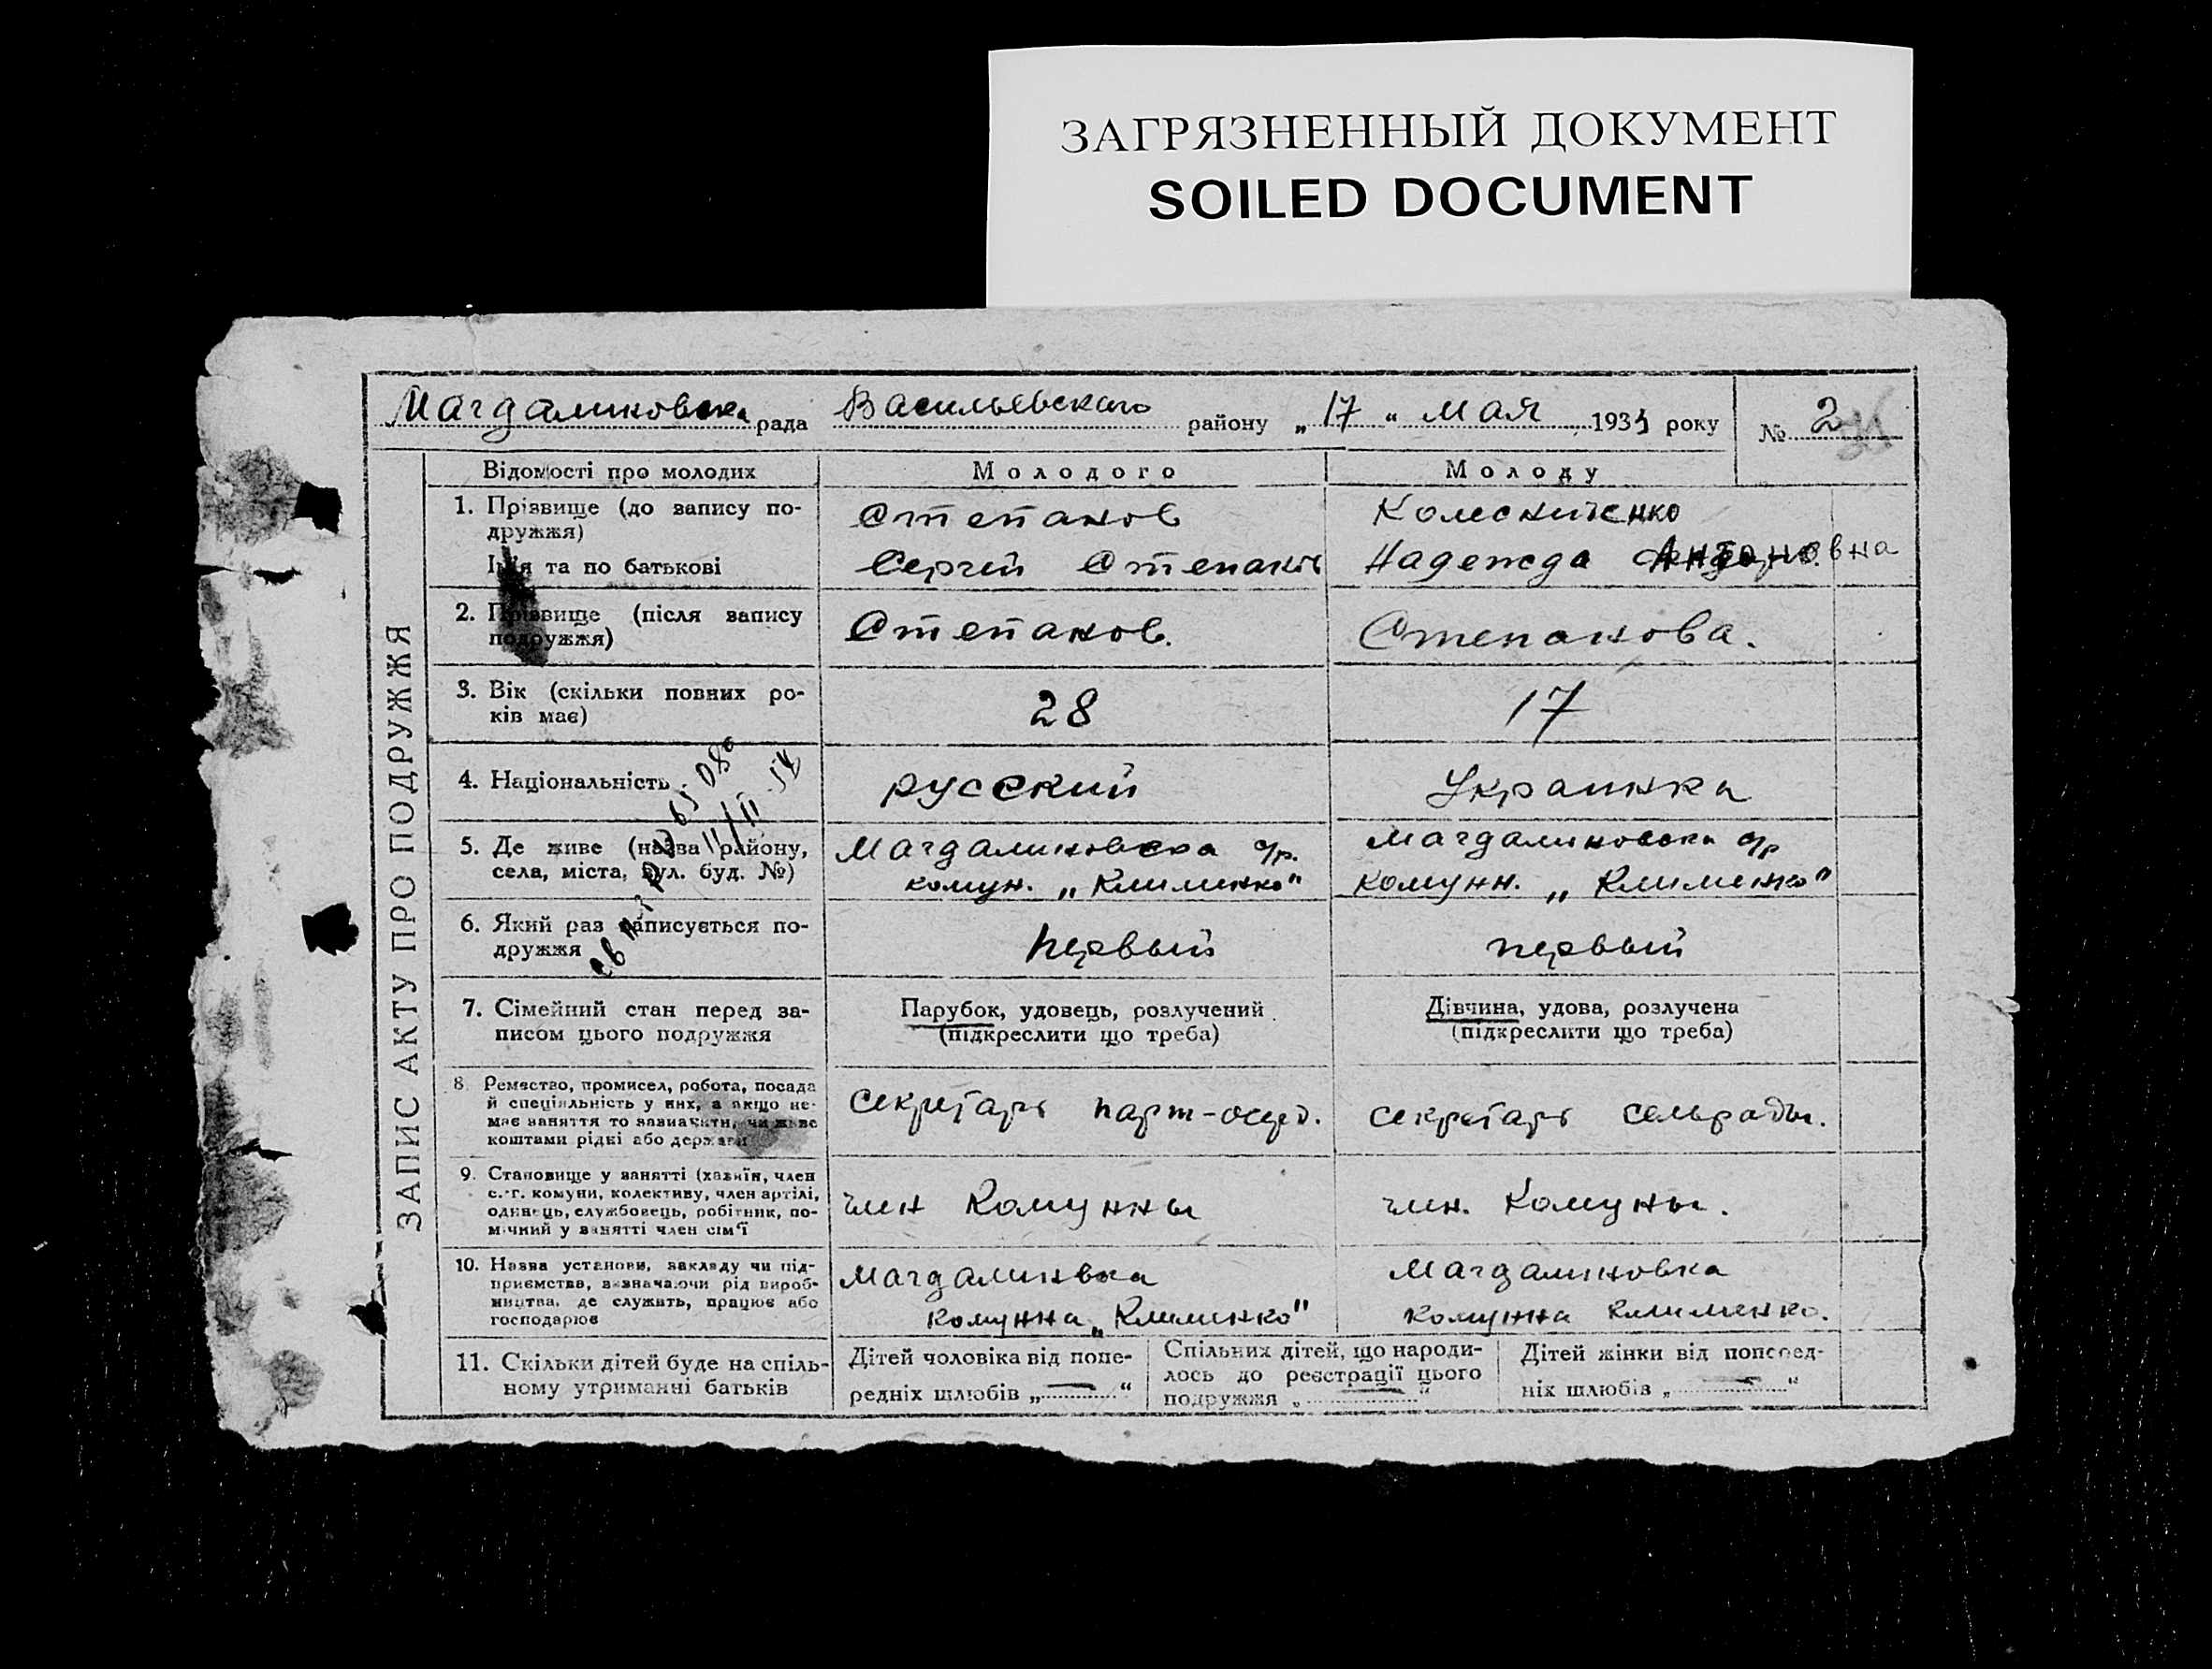 ЗАГРЯЗНЕННЫЙ ДОКУМЕНТ
SOILED DOCUMENT
Магдалиновска рада Васильевского району „ 17 “ мая 193 року № 2
ЗАПИС АКТУ ПРО ПОДРУЖЖЯ
Відомості про молодих
Молодого
Молоду
1. Прізвище (до запису по-
дружжя)
Степанов
Колесниченко
Ім'я та по батькові
Сергей Степанов
Надежда Антоновна
2. Прізвище (після запису
подружжя)
Степанов.
Степанова.
3. Вік (скільки повних ро-
ків має)
28
17
4. Національність
русский
Украинка
5. Де живе (назва району,
села, міста, вул. буд. №)
Магдалиновска с/р.
комун. „Клименко"
Магдалиновска с/р
Комунн. „Клименко"
6. Який раз записується по-
дружжя
первый
первый
7. Сімейний стан перед за-
писом цього подружжя
Парубок, удовець, розлучений
(підкреслити що треба)
Дівчина, удова, розлучена
(підкреслити що треба)
8 Ремество, промисел, робота, посада
й спеціяльність у них, а якщо не-
має заняття то зазначити, чи живе
коштами рідні або держави
секретарь парт-осер.
секретарь сельрады.
9. Становище у занятті (хазяїн, член
с.-г. комуни, колективу, член артілі,
одинець, службовець, робітник, по-
мічний у занятті член сім'ї
член Комунны
член. Комуны.
10. Назва установи, закладу чи під-
приємства, визначаючи рід вироб-
ництва, де служить, працює або
господарює
Магдалинвка
комунна „Клименко"
Магдалиновка
комунна Клименко.
11. Скільки дітей буде на спіль-
ному утриманні батьків
Дітей чоловіка від попе-
редніх шлюбів „ — “
Спільних дітей, що народи-
лось до реєстрації цього
подружжя „ — “
Дітей жінки від поперед-
ніх шлюбів „ — “